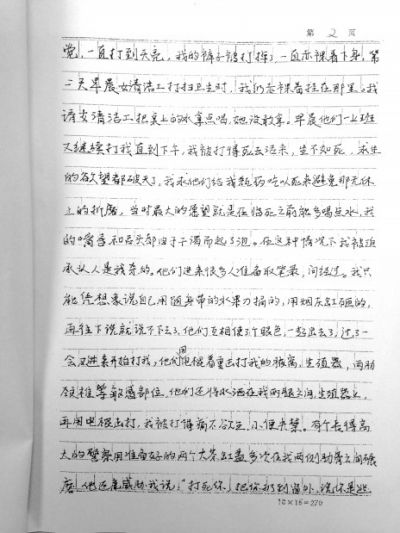 第 2 页
觉,一直打到天亮,我的裤子被打掉了,一直赤裸着下身,第
二天早晨女清洁工打扫卫生时,我仍赤裸着挂在那里。我
请女清洁工把桌上的水拿点喝,她没敢拿。早晨他们一上班
又继续打我直到下午,我被打得死去活来,生不如死,求生
的欲望都破灭了,我求他们给我颗药吃以死来避免那无休
止的折磨,当时最大的愿望就是在临死之前能多喝点水,我
的嘴唇和舌头都由于干渴而起了泡。在这种情况下我被迫
承认人是我杀的。他们进来很多人准备取笔录,问经过。我只
能凭想象说自己用随身带的水果刀捅的,用烟灰缸砸的,
再往下说就说不下去了,他们互相使了眼色,一起出去了,过了一
会又进来开始打我,他们用电棍着重击打我的裤裆,生殖器,两肋
颈椎等敏感部位,他们还将水洒在我两腿之间,生殖器上,
再用电棍击打,我被打得痛不欲生,小便失禁。有个长得高
大的警察用准备好的两个大茶缸盖多次在我两侧肋骨之间碾
磨,他还威胁我说:“打死你,把你扔到窗外,说你是逃
18×15=270